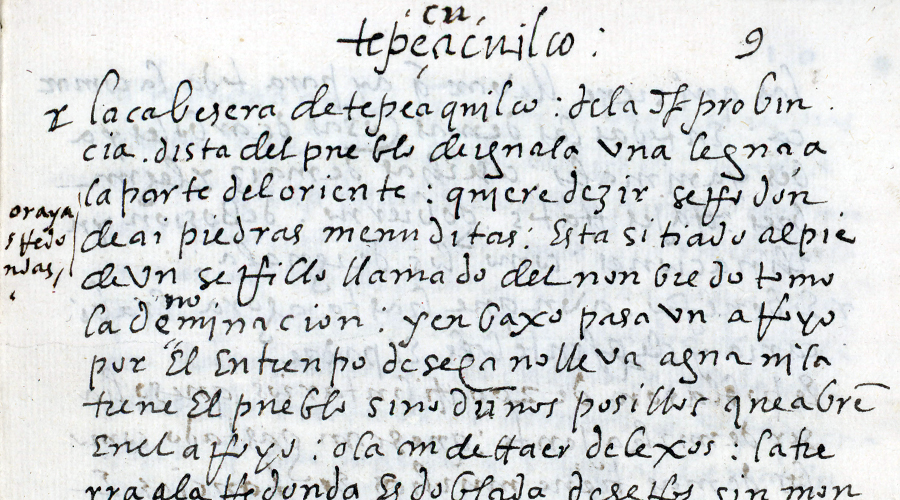 cu
tepeacuilco :
9
la cabesera de tepeaquilco : de la probin
cia . dista del pueblo de iguala una legua a
la parte del oriente : quiere dezir serro don
de ai piedras menuditas : Esta sitiado al pie
de un serrillo llamado del nonbre do tomo
la denominacion : y en baxo pasa un arroyo
por El Entienpo de seca no lleva agua ni la
tiene El pueblo sino dunos posillos que abrē
En el arroyo : o la an de traer de lexos : la tie
rra a la rredonda Es doblada de serros sin mon